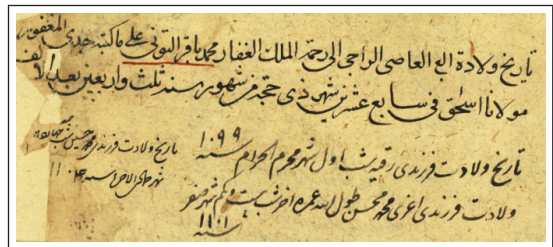 تاریخ ولادة العاصی الراجی الی رحمة الملک الغفار محمد باقر التونی علی ما کتبه جدی المغفور
مولانا اسحق فی سابع عشرین شهر ذی حجة من شهور سنة ثلث واربعین بعد الالف
تاریخ ولادت فرزندی رقیه شب اول شهر محرم الحرام سنه ۱۰۹۹
ولادت فرزندی اعزی محمد محسن طول الله عمره اخر شب بیست و شهر صفر
سنه ۱۱۰۱
تاریخ ولادت فرزندی محمد حسین شب
شهر سنه ۱۱۰۴